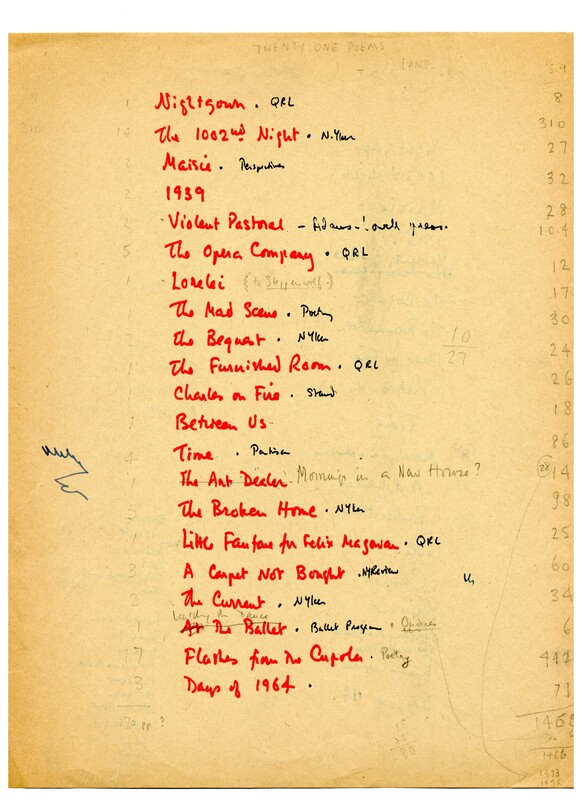 TWENTY ONE POEMS
LAND
1 Nightgown . QRL 8
14 The 1002nd Night . N.Yker 310
2 Maisie . Perspectives 27
1939 32
2 Violent Pastoral 28
104
5 The Opera Company . QRL 12
1 Lorelei {to Steppenwolf.} 17
The Mad Scene . Poetry 30
The Bequest . NYker 10 24
27
The Furnished Room . QRL 26
1 Charles on Fire . Stand 18
Between Us 86
4 Time . Partisan
1 The Ant Dealer Mornings in a New House? 28 14
5 The Broken Home . NYker 98
1 Little Fanfare for Felix Magowan . QRL 25
3 A Carpet Not Bought . NYReview 60
The Current . NYker 34
At The Ballet . Ballet Program + Opinions 6
17 Flashes from the Cupola . Poetry 412
3 Days of 1964 . 73
pp. ?
1466